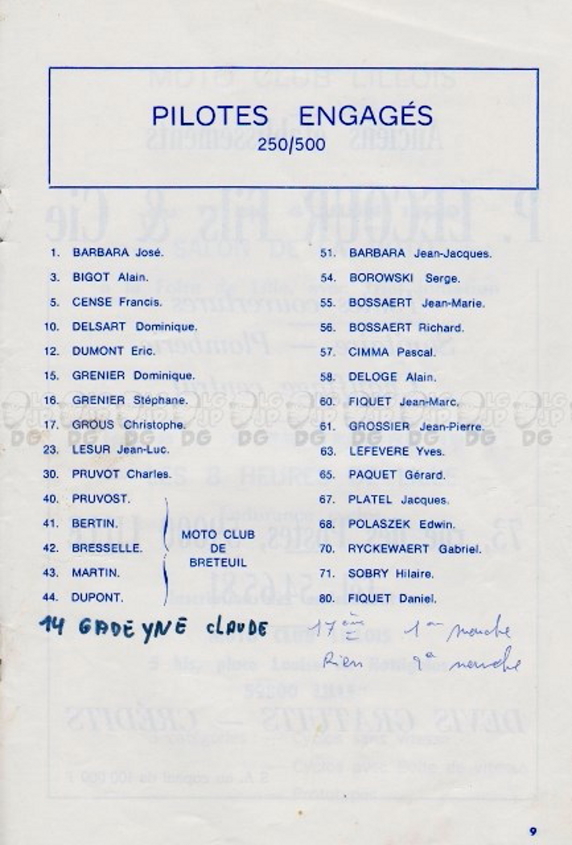 PILOTES ENGAGÉS
250/500
1. BARBARA José.
3. BIGOT Alain.
5. CENSE Francis.
10. DELSART Dominique.
12. DUMONT Eric.
15. GRENIER Dominique.
16. GRENIER Stéphane.
17. GROUS Christophe.
23. LESUR Jean-Luc.
30. PRUVOT Charles.
40. PRUVOST.
41. BERTIN.
42. BRESSELLE.
43. MARTIN.
44. DUPONT.
MOTO CLUB
DE
BRETEUIL
14 GADEYNE CLAUDE
51. BARBARA Jean-Jacques.
54. BOROWSKI Serge.
55. BOSSAERT Jean-Marie.
56. BOSSAERT Richard.
57. CIMMA Pascal.
58. DELOGE Alain.
60. FIQUET Jean-Marc.
61. GROSSIER Jean-Pierre.
63. LEFEVERE Yves.
65. PAQUET Gérard.
67. PLATEL Jacques.
68. POLASZEK Edwin.
70. RYCKEWAERT Gabriel.
71. SOBRY Hilaire.
80. FIQUET Daniel.
17ème 1ère manche
Rien 2e manche
9